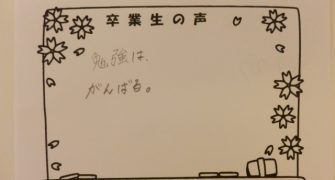 卒業生の声
勉強は、
がんばる。